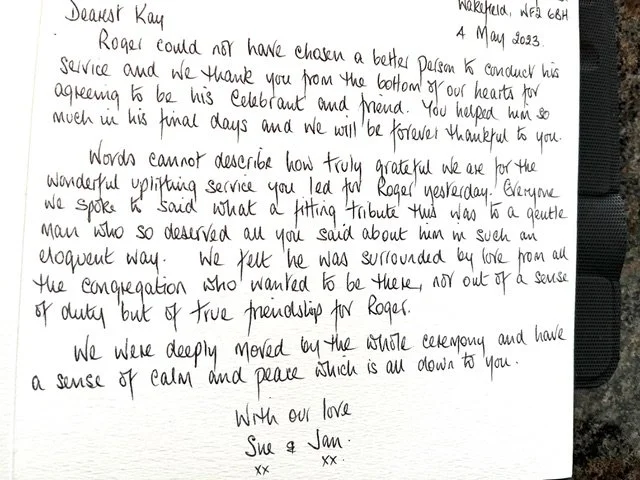 Wakefield, WF2 6BH
4 May 2023.
Dearest Kay
Roger could not have chosen a better person to conduct his
service and we thank you from the bottom of our hearts for
agreeing to be his Celebrant and friend. You helped him so
much in his final days and we will be forever thankful to you.
Words cannot describe how truly grateful we are for the
wonderful uplifting service you led for Roger yesterday. Everyone
we spoke to said what a fitting tribute this was to a gentle
man who so deserved all you said about him in such an
eloquent way. We felt he was surrounded by love from all
the congregation who wanted to be there, not out of a sense
of duty but of true friendship for Roger.
We were deeply moved by the whole ceremony and have
a sense of calm and peace which is all down to you.
With our love
Sue & Jan.
xx xx.